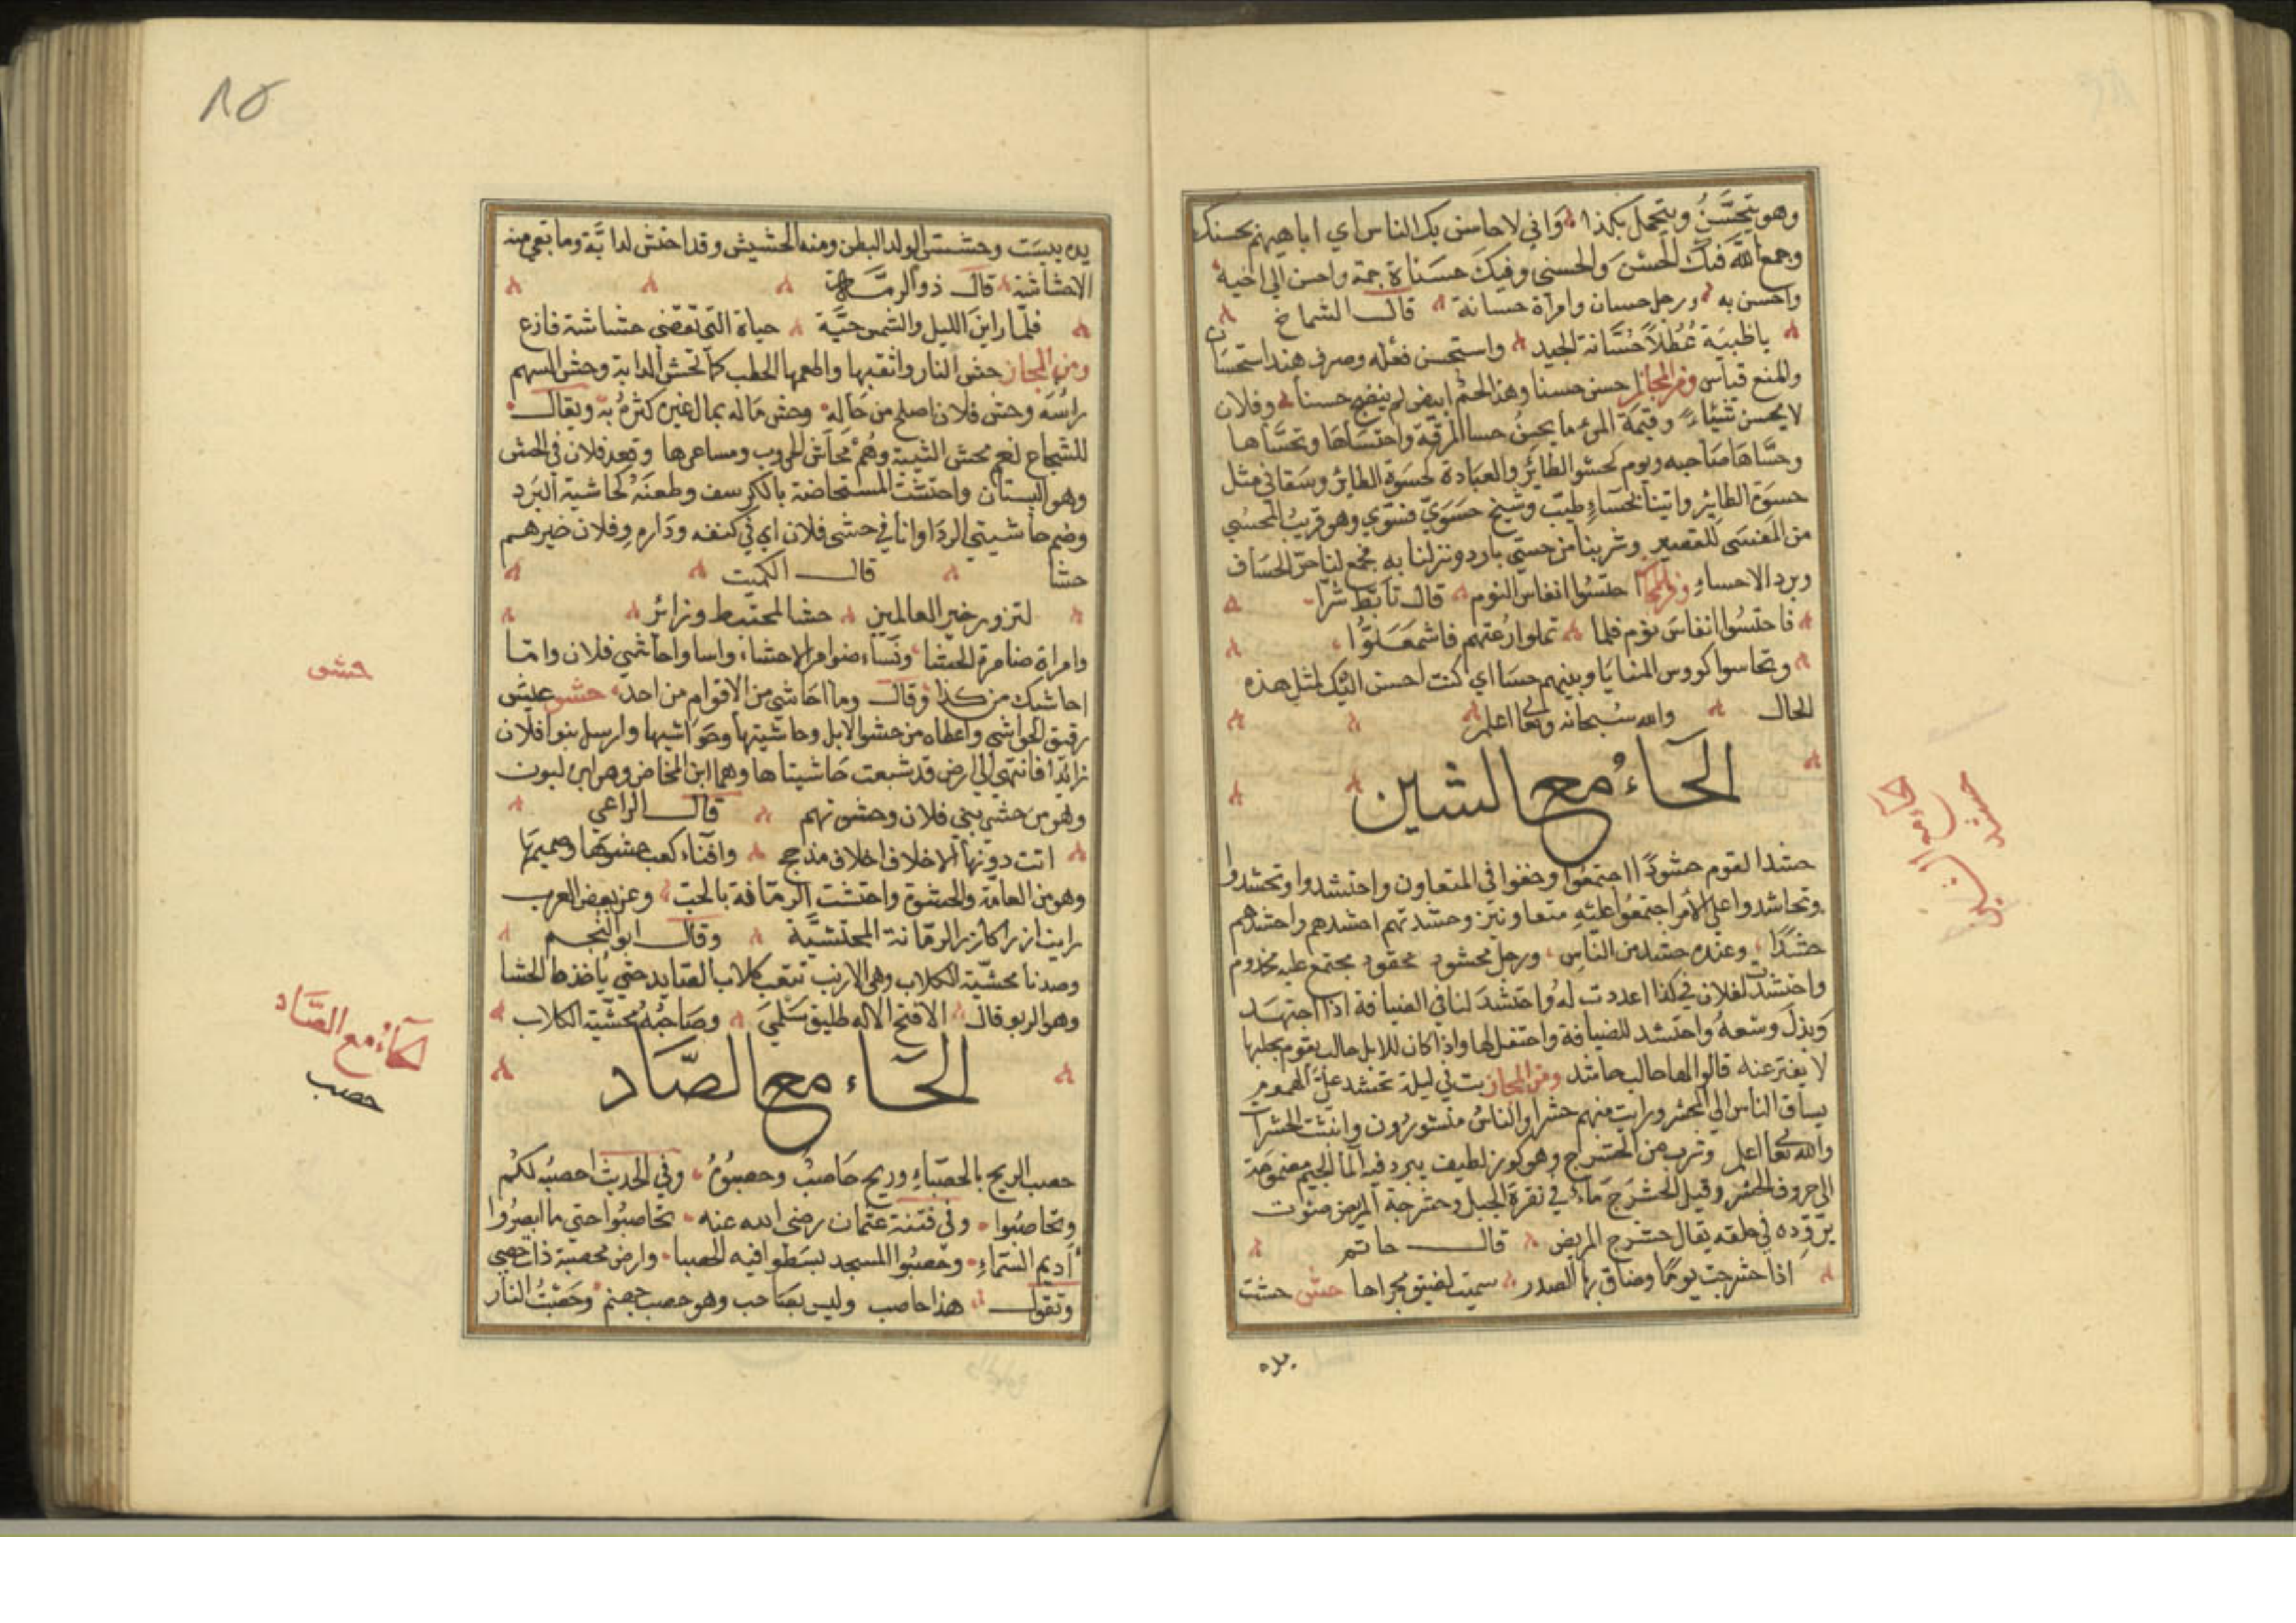 وهو يتحسّن ويتجمل بكذا واني لاحاسن بك الناس اي اباهيهم بحسنك
وجمع الله فيك الحسن والحسنى وفيك حسناة جمة واحسن الى اخيه
واحسن به ورجل حسان وامراة حسانة قال الشماخ
ياظبية عُطُلاً حُسَّانة الجيد واستحسن فعله وصرف هند استحسان
والمنع قياس ومن المجاز حسن حسنا وهذا لحم ابيض لم ينضج حسنا وفلان
لا يحسن شيئاء وقيمة المرء ما يحسنُ حسا المرقة واحتساها وتحسّاها
وحسّاها صاحبه ويوم كحسو الطائر والعبادة كحسوة الطائر وسقاني مثل
حسوة الطائر واتينا بحساء طيّب وشيخ حسويّ فسوي وهو قريب المحسى
من المفسى للقصير وشربنا من حسي بارد ونزلنا به فجمع لنا حرّ الحساف
وبرد الاحساء ومن المجاز احتسُوا انفاس النوم قال تابّط شرّا
فاحتسُوا انفاس نوم فلما تملوا رُعتهم فاشمعلوّا
وتحاسوا كووس المنايا وبينهم حسا اي كنت احسن اليك لمثل هذه
الحال والله سبحانه وتعالى اعلم
الحاءُ مع الشين
حشد القوم حشودًا اجتمعوا وخفوا في المتعاون واحتشدوا وتحشدوا
وتحاشدوا على الأمر اجتمعُوا عليه متعاونين وحشدتهم احشدهم واحشدهم
حشدًا وعنده حشد من الناس ورجل محشود محفود مجتمع عليه مخدوم
واحتشدت لفلان في كذا اعددت له واحتشد لنا في الضيافة اذا اجتهد
وبذل وسعهُ واحتشد للضيافة واحتفل لها واذا كان للابل حالب يقوم بحلبها
لا يفتر عنه قالوا لها حالب حاشد ومن المجاز بت في ليلة تحشد عليّ الهموم
يساق الناس الى المحشر ورايت منهم حشرا والناسُ منشورُون وانبثت الحشرات
والله تعالى اعلم وشرب من الحشرج وهو كوز لطيف يبرد فيه الما الجيم مضمومة
الى حروف الحشر وقيل الحشرج ماء في نقرة الجبل وحشرجة المريض صوت
يرّدده في حلقه يقال حشرج المريض قال حاتم
اذا حشرجت يومًا وضاق بها الصدر سميت لضيق مجراها حش حشت
يده
حشد
الحاء مع الشين
٨٥
يده يبست وحششتى الولد البطن ومنه الحشيش وقد احتش لدابّة وما بقي منه
الاحشاشة قال ذو الرمّة
فلمّا راين الليل والشمس حيّة حياة التى تقضى حشاشة فازع
ومن المجاز حش النار واثقبها واطعمها الحطب كما تحش الدابة وحش السهم
راسَه وحش فلان اصلح من حاله وحش ماله بمال غيره كثرهُ به ويقال
للشجاع نعم محش الثيبة وهُم محاش الحروب ومساعرها وقعد فلان في الحش
وهو البستان واحتشت المستحاضة بالكرسف وطعنَهُ كحاشية البَرد
وضم حاشيتي الردا وانا في حشى فلان اي في كنفه وداره وفلان خيرهم
حشا قال الكميت
لتزور خير العالمين حشا لمختبط وزائر
وامراة ضامرة الحشا ونساء ضوامر الاحشاء واسا واحاشي فلان وامّا
احاشيك من كذا وقال وما احاشي من الاقوام من احد حشو عيش
رقيق الحواشي واعطاه من حشو الابل وحاشيتها وحواشيها وارسل بنوا فلان
رائدًا فانتهى الى ارض قد شبعت حاشيتاها وهما ابن المخاض وهو ابن لبون
وهو من حشي بني فلان وحشوتهم قال الراعي
اتت دونها الاخلاف اخلاف مذحج وافناء كعب حشوها وصميمها
وهو من العامة والحشوة واحتشت الرمّانة بالحبّ وعن بعض العرب
رايت ازرا كازر الرمّانة المحتشيّة وقال ابو النجم
وصدنا محشّية الكلاب وهي الارنب تتعب كلاب الصّايد حتى ياخذها الحشا
وهو الربو قال الا فتح الاله طليق سلمى وصاحبهُ محشّية الكلاب
الحاء مع الصّاد
حصب الريح بالحصباء وريح حاصبُ وحصبةٌ وفي الحديث احصبُه لكم
وتحاصبُوا وفي فتنة عثمان رضى الله عنه تحاصبُوا حتى ما ابصرُوا
أديم السّماء وحصبُوا المسجد بسطوا فيه الحصبا وارض محصبة ذات حصى
وتقول هذا حاصب وليس بصاحب وهو حصب جهنم وحصبتُ النار
حشو
الحاءُ مع الصّاد
حصب